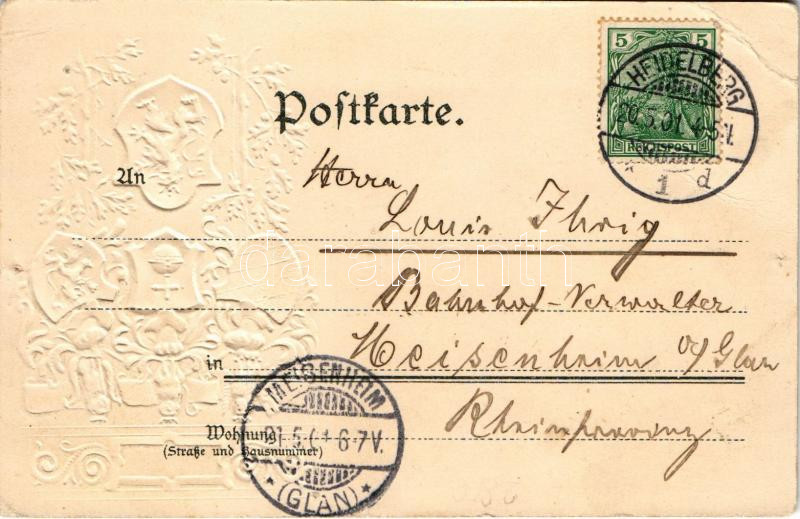 5 5
REICHSPOST
HEIDELBERG
20.5.01. 4-5V.
* 1 d
Postkarte.
An
Herrn
Louis Ihrig
darabanth
Bahnhof-Verwalter
in
Meisenheim a/Glan
Rheinprovinz
MEISENHEIM
21.5.01 6-7V.
* (GLAN) *
Wohnung
(Straße und Hausnummer)